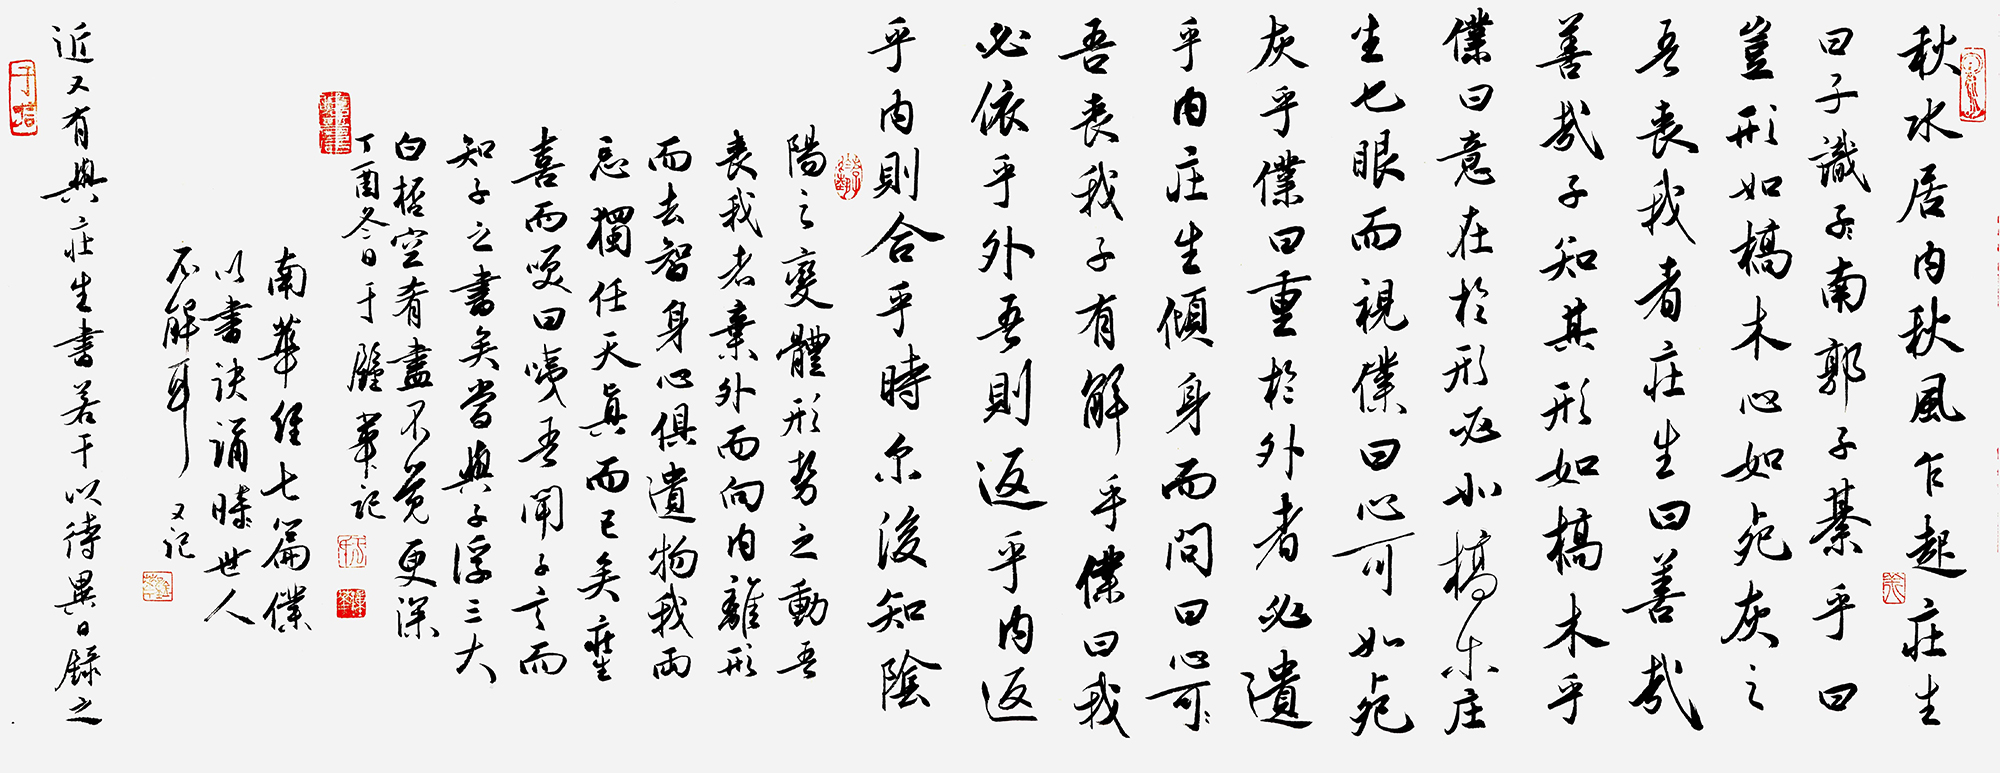 秋水居内秋風乍起庄生
曰子識子南郭子綦乎曰
豈形如槁木心如死灰之
吾丧我者庄生曰善哉
善哉子知其形如槁木乎
僕曰意在於形必如槁木庄
生也眼而視僕曰心可如死
灰乎僕曰重於外者必遺
乎内庄生傾身而問曰心可
吾丧我子有解乎僕曰我
必依乎外吾則返乎内返
乎内則合乎時尔後知陰
陽之變體形势之動吾
丧我者棄外而向内離形
而去智身心俱遺物我两
忘獨任天真而已矣庄生
喜而笑曰噫吾聞子言而
知子之書矣當與子浮三大
白栝空肴盡不覺更深
丁酉冬日于 華記
南華經七篇僕
以書诀誦時世人
不解耳 又记
近又有與庄生書若干以待異日録之